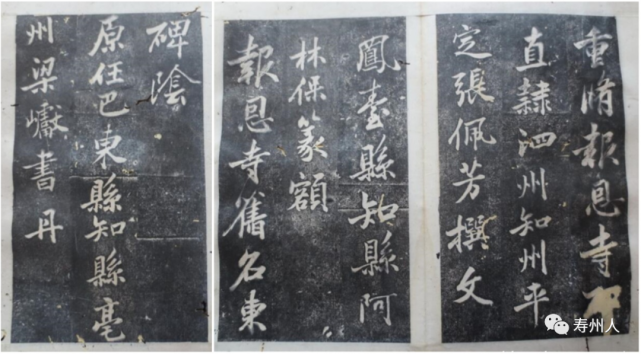 重脩報恩寺碑
直隸泗州知州平
定張佩芳撰文
鳳臺縣知縣阿
林保篆額
報恩寺舊名東
碑陰
原任巴東縣知縣亳
州梁巘書丹
寿州人